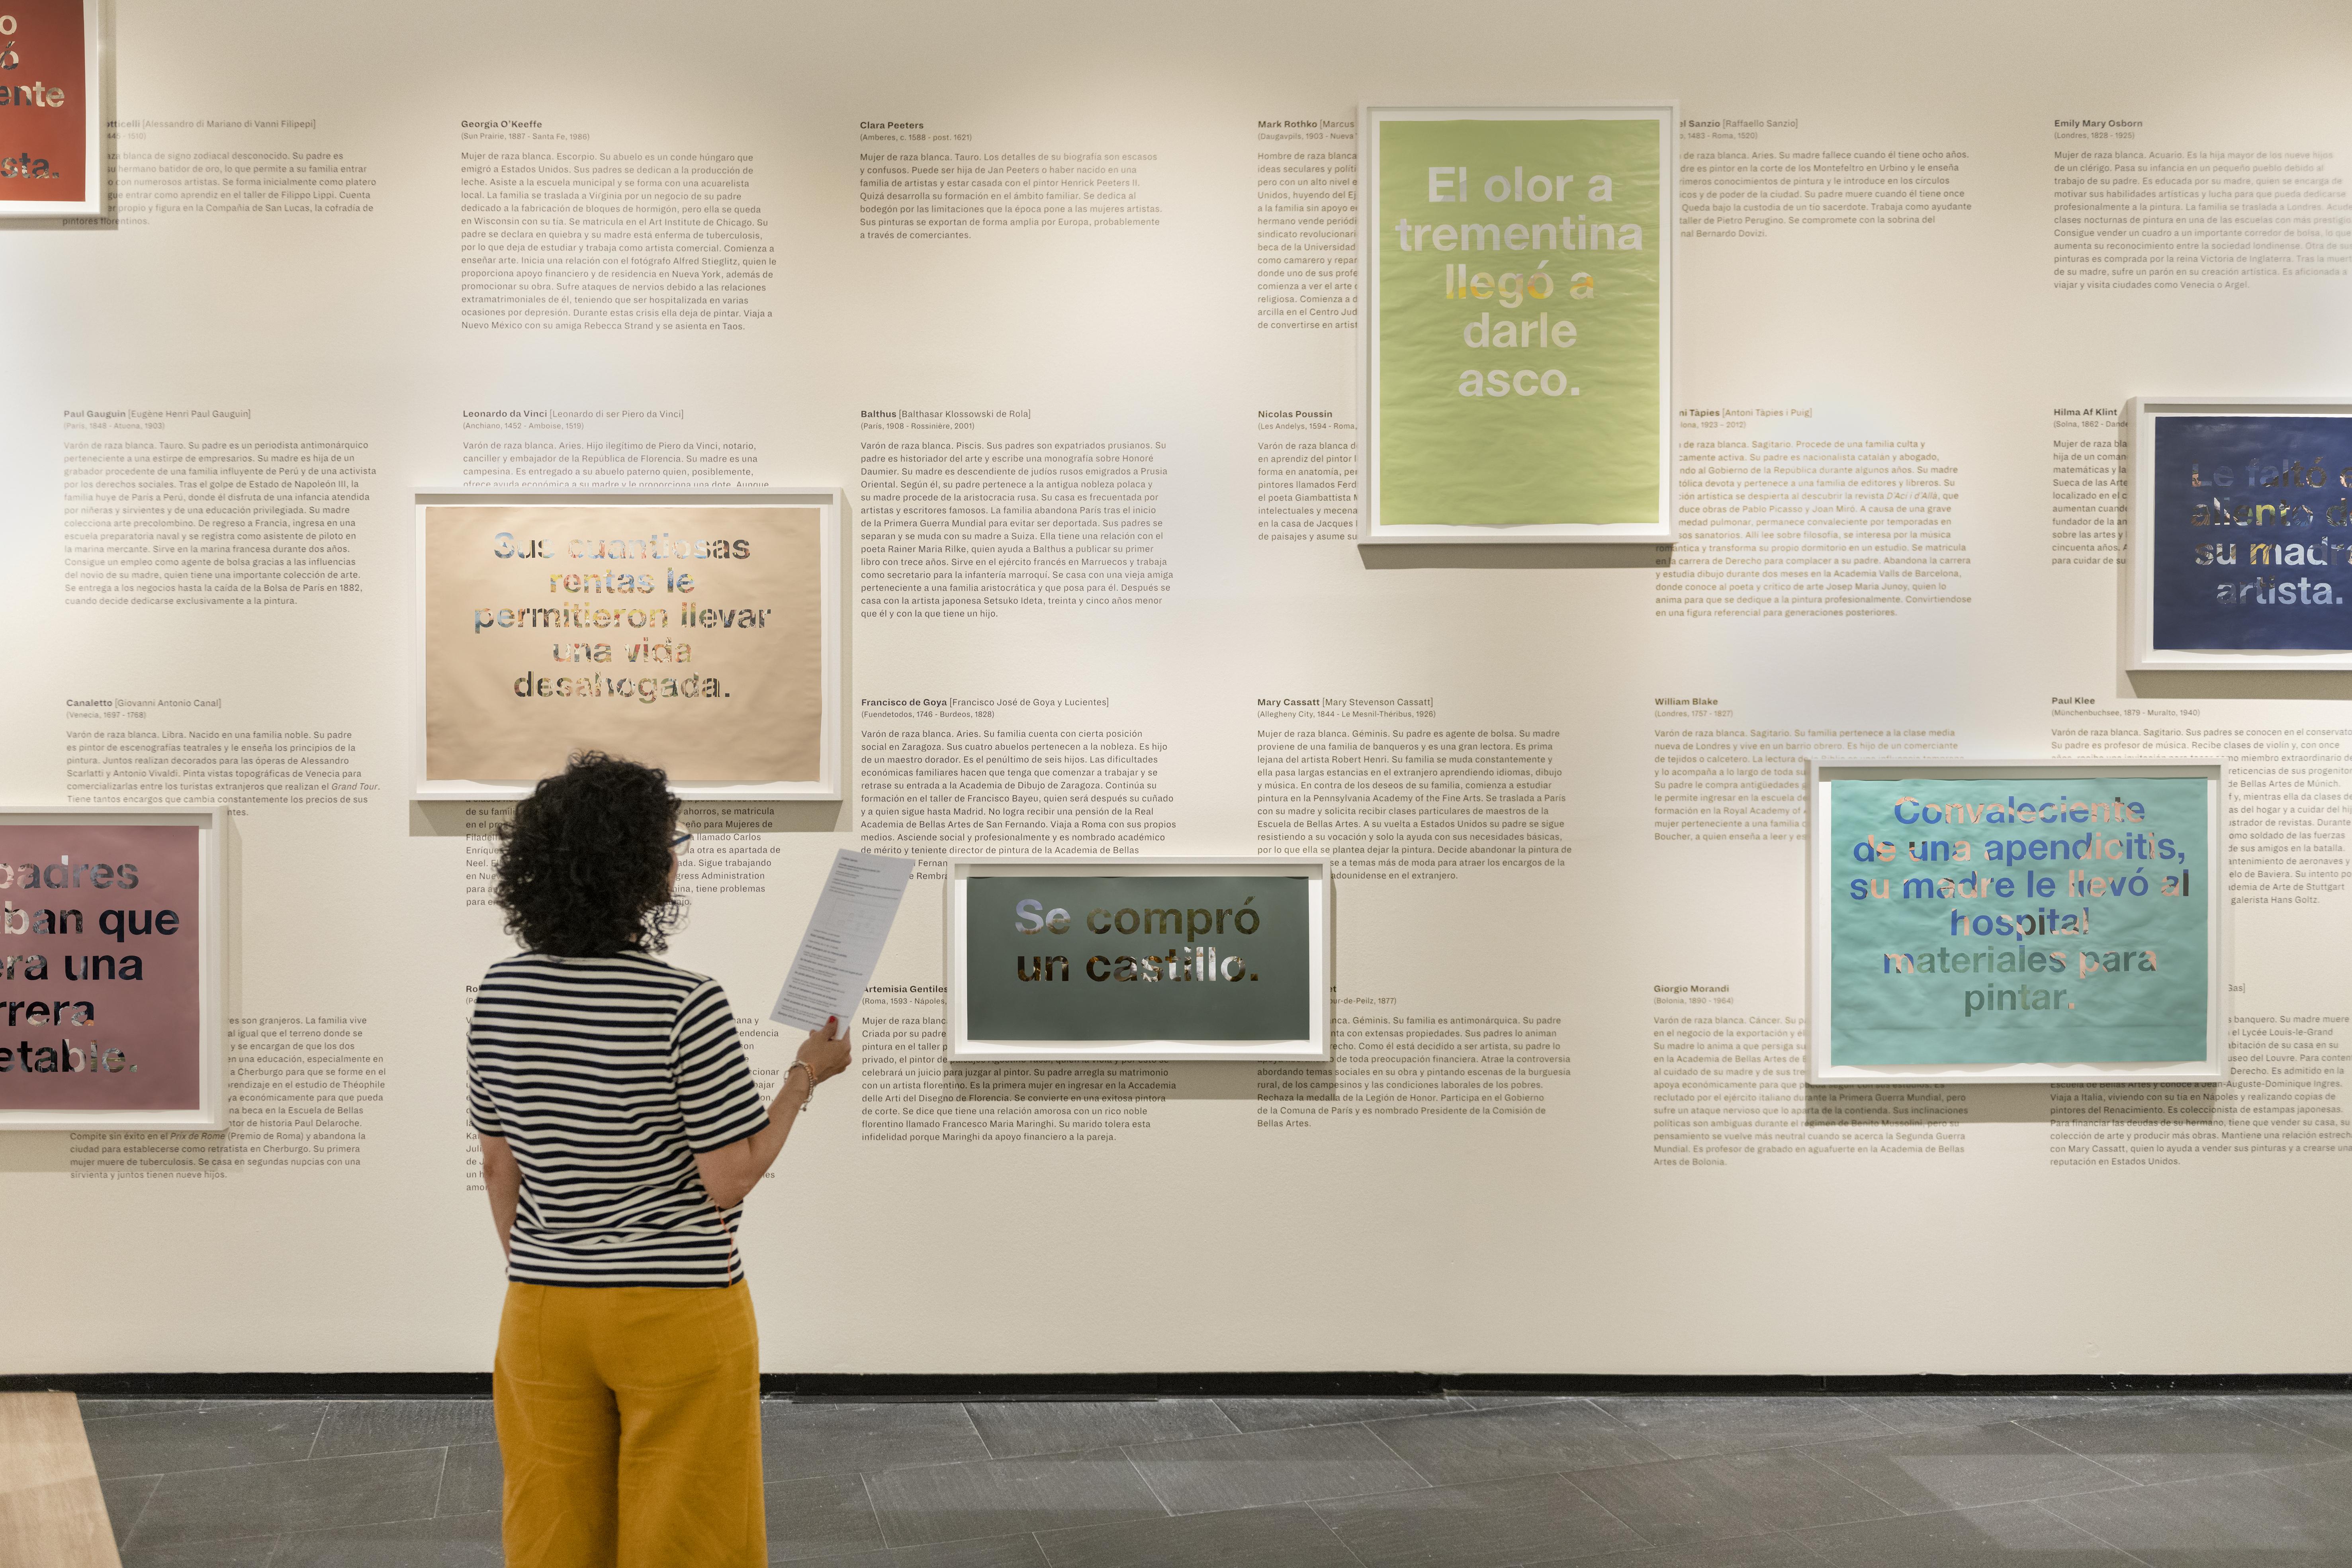 o
ó
ente
sta.
tticelli [Alessandro di Mariano di Vanni Filipepi]
45 - 1510)
aza blanca de signo zodiacal desconocido. Su padre es
su hermano batidor de oro, lo que permite a su familia entrar
o con numerosos artistas. Se forma inicialmente como platero
gue entrar como aprendiz en el taller de Filippo Lippi. Cuenta
er propio y figura en la Compañía de San Lucas, la cofradía de
pintores florentinos.
Georgia O'Keeffe
(Sun Prairie, 1887 - Santa Fe, 1986)
Mujer de raza blanca. Escorpio. Su abuelo es un conde húngaro que
emigró a Estados Unidos. Sus padres se dedican a la producción de
leche. Asiste a la escuela municipal y se forma con una acuarelista
local. La familia se traslada a Virginia por un negocio de su padre
dedicado a la fabricación de bloques de hormigón, pero ella se queda
en Wisconsin con su tía. Se matricula en el Art Institute de Chicago. Su
padre se declara en quiebra y su madre está enferma de tuberculosis,
por lo que deja de estudiar y trabaja como artista comercial. Comienza a
enseñar arte. Inicia una relación con el fotógrafo Alfred Stieglitz, quien le
proporciona apoyo financiero y de residencia en Nueva York, además de
promocionar su obra. Sufre ataques de nervios debido a las relaciones
extramatrimoniales de él, teniendo que ser hospitalizada en varias
ocasiones por depresión. Durante estas crisis ella deja de pintar. Viaja a
Nuevo México con su amiga Rebecca Strand y se asienta en Taos.
Clara Peeters
(Amberes, c. 1588 - post. 1621)
Mujer de raza blanca. Tauro. Los detalles de su biografía son escasos
y confusos. Puede ser hija de Jan Peeters o haber nacido en una
familia de artistas y estar casada con el pintor Henrick Peeters II.
Quizá desarrolla su formación en el ámbito familiar. Se dedica al
bodegón por las limitaciones que la época pone a las mujeres artistas.
Sus pinturas se exportan de forma amplia por Europa, probablemente
a través de comerciantes.
Mark Rothko [Marcus
(Daugavpils, 1903 - Nueva
Hombre de raza blanca
ideas seculares y políti
pero con un alto nivel e
Unidos, huyendo del Ej
a la familia sin apoyo e
hermano vende periódi
sindicato revolucionari
beca de la Universidad
como camarero y repar
donde uno de sus profe
comienza a ver el arte
religiosa. Comienza a d
arcilla en el Centro Jud
de convertirse en artist
El olor a
trementina
llegó a
darle
asco.
el Sanzio [Raffaello Sanzio]
o, 1483 - Roma, 1520)
de raza blanca. Aries. Su madre fallece cuando él tiene ocho años.
dre es pintor en la corte de los Montefeltro en Urbino y le enseña
rimeros conocimientos de pintura y le introduce en los círculos
icos y de poder de la ciudad. Su padre muere cuando él tiene once
Queda bajo la custodia de un tío sacerdote. Trabaja como ayudante
taller de Pietro Perugino. Se compromete con la sobrina del
nal Bernardo Dovizi.
Emily Mary Osborn
(Londres, 1828 - 1925)
Mujer de raza blanca. Acuario. Es la hija mayor de los nueve hijos
de un clérigo. Pasa su infancia en un pequeño pueblo debido al
trabajo de su padre. Es educada por su madre, quien se encarga de
motivar sus habilidades artísticas y lucha para que pueda dedicarse
profesionalmente a la pintura. La familia se traslada a Londres. Acude
clases nocturnas de pintura en una de las escuelas con más prestigio
Consigue vender un cuadro a un importante corredor de bolsa, lo que
aumenta su reconocimiento entre la sociedad londinense. Otra de sus
pinturas es comprada por la reina Victoria de Inglaterra. Tras la muert
de su madre, sufre un parón en su creación artística. Es aficionada a
viajar y visita ciudades como Venecia o Argel.
Paul Gauguin [Eugène Henri Paul Gauguin]
(París, 1848 - Atuona, 1903)
Varón de raza blanca. Tauro. Su padre es un periodista antimonárquico
perteneciente a una estirpe de empresarios. Su madre es hija de un
grabador procedente de una familia influyente de Perú y de una activista
por los derechos sociales. Tras el golpe de Estado de Napoleón III, la
familia huye de París a Perú, donde él disfruta de una infancia atendida
por niñeras y sirvientes y de una educación privilegiada. Su madre
colecciona arte precolombino. De regreso a Francia, ingresa en una
escuela preparatoria naval y se registra como asistente de piloto en
la marina mercante. Sirve en la marina francesa durante dos años.
Consigue un empleo como agente de bolsa gracias a las influencias
del novio de su madre, quien tiene una importante colección de arte.
Se entrega a los negocios hasta la caída de la Bolsa de París en 1882,
cuando decide dedicarse exclusivamente a la pintura.
Leonardo da Vinci [Leonardo di ser Piero da Vinci]
(Anchiano, 1452 - Amboise, 1519)
Varón de raza blanca. Aries. Hijo ilegítimo de Piero da Vinci, notario,
canciller y embajador de la República de Florencia. Su madre es una
campesina. Es entregado a su abuelo paterno quien, posiblemente,
ofrece ayuda económica a su madre y le proporciona una dote. Aunque
Sus cuantiosas
rentas le
permitieron llevar
una vida
desahogada.
Balthus [Balthasar Klossowski de Rola]
(París, 1908 - Rossinière, 2001)
Varón de raza blanca. Piscis. Sus padres son expatriados prusianos. Su
padre es historiador del arte y escribe una monografía sobre Honoré
Daumier. Su madre es descendiente de judíos rusos emigrados a Prusia
Oriental. Según él, su padre pertenece a la antigua nobleza polaca y
su madre procede de la aristocracia rusa. Su casa es frecuentada por
artistas y escritores famosos. La familia abandona París tras el inicio
de la Primera Guerra Mundial para evitar ser deportada. Sus padres se
separan y se muda con su madre a Suiza. Ella tiene una relación con el
poeta Rainer Maria Rilke, quien ayuda a Balthus a publicar su primer
libro con trece años. Sirve en el ejército francés en Marruecos y trabaja
como secretario para la infantería marroquí. Se casa con una vieja amiga
perteneciente a una familia aristocrática y que posa para él. Después se
casa con la artista japonesa Setsuko Ideta, treinta y cinco años menor
que él y con la que tiene un hijo.
Nicolas Poussin
(Les Andelys, 1594 - Roma,
Varón de raza blanca d
en aprendiz del pintor l
forma en anatomía, per
pintores llamados Ferd
el poeta Giambattista M
intelectuales y mecena
en la casa de Jacques l
de paisajes y asume su
ni Tàpies [Antoni Tàpies i Puig]
lona, 1923 - 2012)
de raza blanca. Sagitario. Procede de una familia culta y
camente activa. Su padre es nacionalista catalán y abogado,
ndo al Gobierno de la República durante algunos años. Su madre
tólica devota y pertenece a una familia de editores y libreros. Su
ción artística se despierta al descubrir la revista D'Ací i d'Allà, que
duce obras de Pablo Picasso y Joan Miró. A causa de una grave
medad pulmonar, permanece convaleciente por temporadas en
sos sanatorios. Allí lee sobre filosofía, se interesa por la música
romántica y transforma su propio dormitorio en un estudio. Se matricula
en la carrera de Derecho para complacer a su padre. Abandona la carrera
y estudia dibujo durante dos meses en la Academia Valls de Barcelona,
donde conoce al poeta y crítico de arte Josep Maria Junoy, quien lo
anima para que se dedique a la pintura profesionalmente. Convirtiéndose
en una figura referencial para generaciones posteriores.
Hilma Af Klint
(Solna, 1862 - Dande
Mujer de raza bla
hija de un coman
matemáticas y la
Sueca de las Arte
localizado en el c
aumentan cuand
fundador de la an
sobre las artes y
cincuenta años. A
para cuidar de su
Le faltó e
aliento de
su madre
artista.
Canaletto [Giovanni Antonio Canal]
(Venecia, 1697 - 1768)
Varón de raza blanca. Libra. Nacido en una familia noble. Su padre
es pintor de escenografías teatrales y le enseña los principios de la
pintura. Juntos realizan decorados para las óperas de Alessandro
Scarlatti y Antonio Vivaldi. Pinta vistas topográficas de Venecia para
comercializarlas entre los turistas extranjeros que realizan el Grand Tour.
Tiene tantos encargos que cambia constantemente los precios de sus
ntes.
padres
ban que
era una
rrera
etable.
de su famil
ahorros, se matricula
en el pr
eño para Mujeres de
Filadel
llamado Carlos
Enríque
la otra es apartada de
Neel. E
ada. Sigue trabajando
en Nue
gress Administration
para a
ina, tiene problemas
para e
Francisco de Goya [Francisco José de Goya y Lucientes]
(Fuendetodos, 1746 - Burdeos, 1828)
Varón de raza blanca. Aries. Su familia cuenta con cierta posición
social en Zaragoza. Sus cuatro abuelos pertenecen a la nobleza. Es hijo
de un maestro dorador. Es el penúltimo de seis hijos. Las dificultades
económicas familiares hacen que tenga que comenzar a trabajar y se
retrase su entrada a la Academia de Dibujo de Zaragoza. Continúa su
formación en el taller de Francisco Bayeu, quien será después su cuñado
y a quien sigue hasta Madrid. No logra recibir una pensión de la Real
Academia de Bellas Artes de San Fernando. Viaja a Roma con sus propios
medios. Asciende social y profesionalmente y es nombrado académico
de mérito y teniente director de pintura de la Academia de Bellas
Fernan
e Rembra
Mary Cassatt [Mary Stevenson Cassatt]
(Allegheny City, 1844 - Le Mesnil-Théribus, 1926)
Mujer de raza blanca. Géminis. Su padre es agente de bolsa. Su madre
proviene de una familia de banqueros y es una gran lectora. Es prima
lejana del artista Robert Henri. Su familia se muda constantemente y
ella pasa largas estancias en el extranjero aprendiendo idiomas, dibujo
y música. En contra de los deseos de su familia, comienza a estudiar
pintura en la Pennsylvania Academy of the Fine Arts. Se traslada a París
con su madre y solicita recibir clases particulares de maestros de la
Escuela de Bellas Artes. A su vuelta a Estados Unidos su padre se sigue
resistiendo a su vocación y solo la ayuda con sus necesidades básicas,
por lo que ella se plantea dejar la pintura. Decide abandonar la pintura de
se a temas más de moda para atraer los encargos de la
adounidense en el extranjero.
Se compró
un castillo.
William Blake
(Londres, 1757 - 1827)
Varón de raza blanca. Sagitario. Su familia pertenece a la clase media
nueva de Londres y vive en un barrio obrero. Es hijo de un comerciante
de tejidos o calcetero. La lectura de
y lo acompaña a lo largo de toda su
Su padre le compra antigüedades
le permite ingresar en la escuela de
formación en la Royal Academy of
mujer perteneciente a una familia
Boucher, a quien enseña a leer y es
Paul Klee
(Münchenbuchsee, 1879 - Muralto, 1940)
Varón de raza blanca. Sagitario. Sus padres se conocen en el conservato
Su padre es profesor de música. Recibe clases de violín y, con once
mo miembro extraordinario de
reticencias de sus progenitor
Bellas Artes de Múnich.
f y, mientras ella da clases de
as del hogar y a cuidar del hij
ustrador de revistas. Durante
omo soldado de las fuerzas
de sus amigos en la batalla.
antenimiento de aeronaves y
elo de Baviera. Su intento po
demia de Arte de Stuttgart
galerista Hans Goltz.
Convaleciente
de una apendicitis,
su madre le llevó al
hospital
materiales para
pintar.
res son granjeros. La familia vive
al igual que el terreno donde se
y se encargan de que los dos
en una educación, especialmente en
a Cherburgo para que se forme en el
rendizaje en el estudio de Théophile
ya económicamente para que pueda
na beca en la Escuela de Bellas
ntor de historia Paul Delaroche.
Compite sin éxito en el Prix de Rome (Premio de Roma) y abandona la
ciudad para establecerse como retratista en Cherburgo. Su primera
mujer muere de tuberculosis. Se casa en segundas nupcias con una
sirvienta y juntos tienen nueve hijos.
Artemisia Gentiles
(Roma, 1593 - Nápoles,
Mujer de raza blanc
Criada por su padre
pintura en el taller p
privado, el pintor de
celebrará un juicio para juzgar al pintor. Su padre arregla su matrimonio
con un artista florentino. Es la primera mujer en ingresar en la Accademia
delle Arti del Disegno de Florencia. Se convierte en una exitosa pintora
de corte. Se dice que tiene una relación amorosa con un rico noble
florentino llamado Francesco Maria Maringhi. Su marido tolera esta
infidelidad porque Maringhi da apoyo financiero a la pareja.
et
our-de-Peilz, 1877)
nca. Géminis. Su familia es antimonárquica. Su padre
nta con extensas propiedades. Sus padres lo animan
recho. Como él está decidido a ser artista, su padre lo
de toda preocupación financiera. Atrae la controversia
abordando temas sociales en su obra y pintando escenas de la burguesía
rural, de los campesinos y las condiciones laborales de los pobres.
Rechaza la medalla de la Legión de Honor. Participa en el Gobierno
de la Comuna de París y es nombrado Presidente de la Comisión de
Bellas Artes.
Giorgio Morandi
(Bolonia, 1890 - 1964)
Varón de raza blanca. Cáncer. Su pa
en el negocio de la exportación y el
Su madre lo anima a que persiga su
en la Academia de Bellas Artes de B
al cuidado de su madre y de sus tre
apoya económicamente para que p
reclutado por el ejército italiano durante la Primera Guerra Mundial, pero
sufre un ataque nervioso que lo aparta de la contienda. Sus inclinaciones
políticas son ambiguas durante el régimen de Benito Mussolini, pero su
pensamiento se vuelve más neutral cuando se acerca la Segunda Guerra
Mundial. Es profesor de grabado en aguafuerte en la Academia de Bellas
Artes de Bolonia.
Gas]
banquero. Su madre muere
el Lycée Louis-le-Grand
abitación de su casa en su
useo del Louvre. Para conten
Derecho. Es admitido en la
Escuela de Bellas Artes y conoce a Jean-Auguste-Dominique Ingres.
Viaja a Italia, viviendo con su tía en Nápoles y realizando copias de
pintores del Renacimiento. Es coleccionista de estampas japonesas.
Para financiar las deudas de su hermano, tiene que vender su casa, su
colección de arte y producir más obras. Mantiene una relación estrech
con Mary Cassatt, quien lo ayuda a vender sus pinturas y a crearse una
reputación en Estados Unidos.